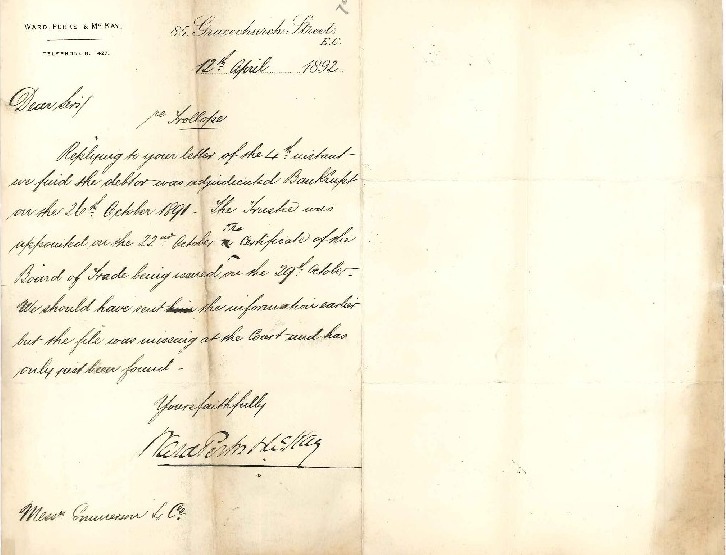 WARD, PERKS & McKAY.
TELEPHONE No. 1427.
85, Gracechurch Street,
E.C.
12th April 1892
Dear Sirs/
re Trollope
Replying to your letter of the 4th instant -
we find the debtor was adjudicated Bankrupt
on the 26th October 1891 - The Trustee was
appointed on the 22nd October The Certificate of the
Board of Trade being issued on the 29th October -
We should have sent him the information earlier
but the file was missing at the Court and has
only just been found -
Yours faithfully
Ward Perks & McKay
Messrs & Co.